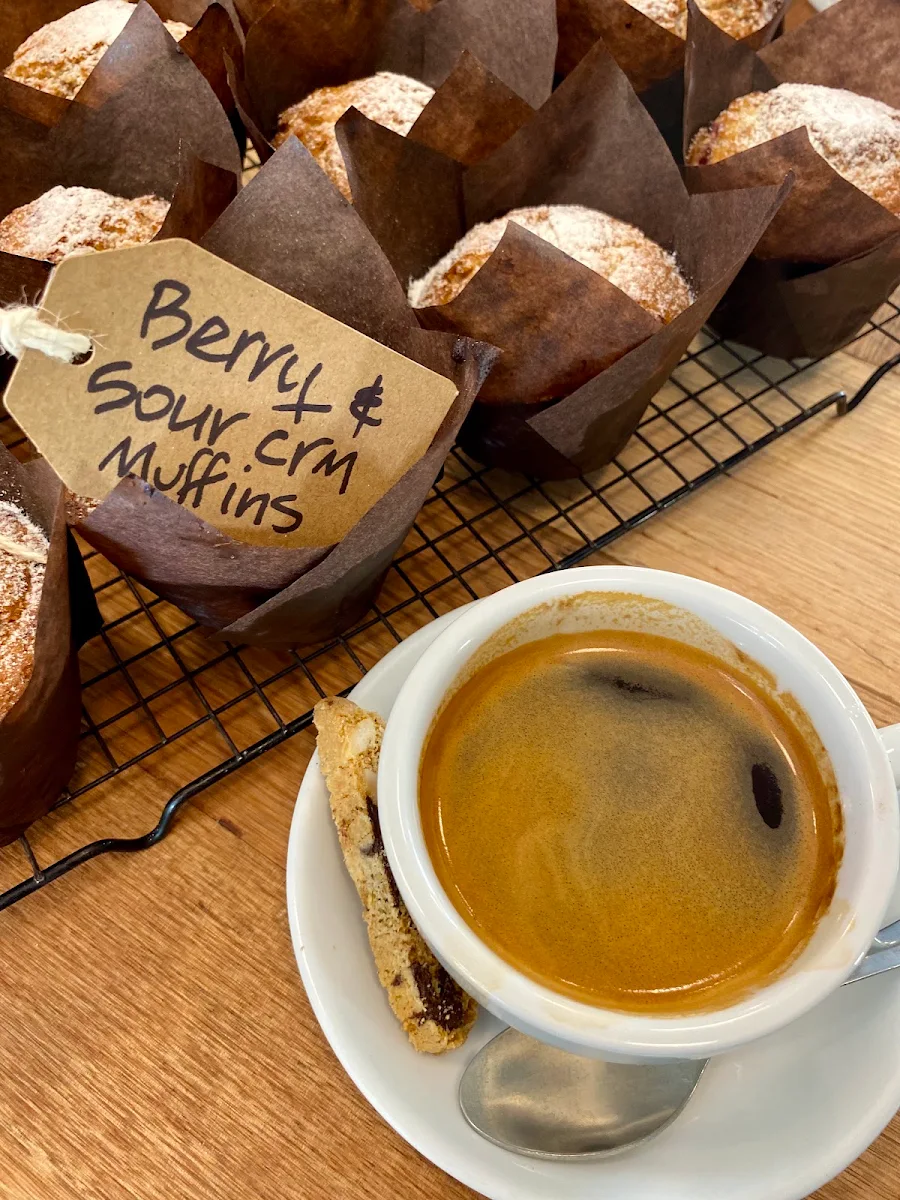 Berry &
Sour Crm
Muffins